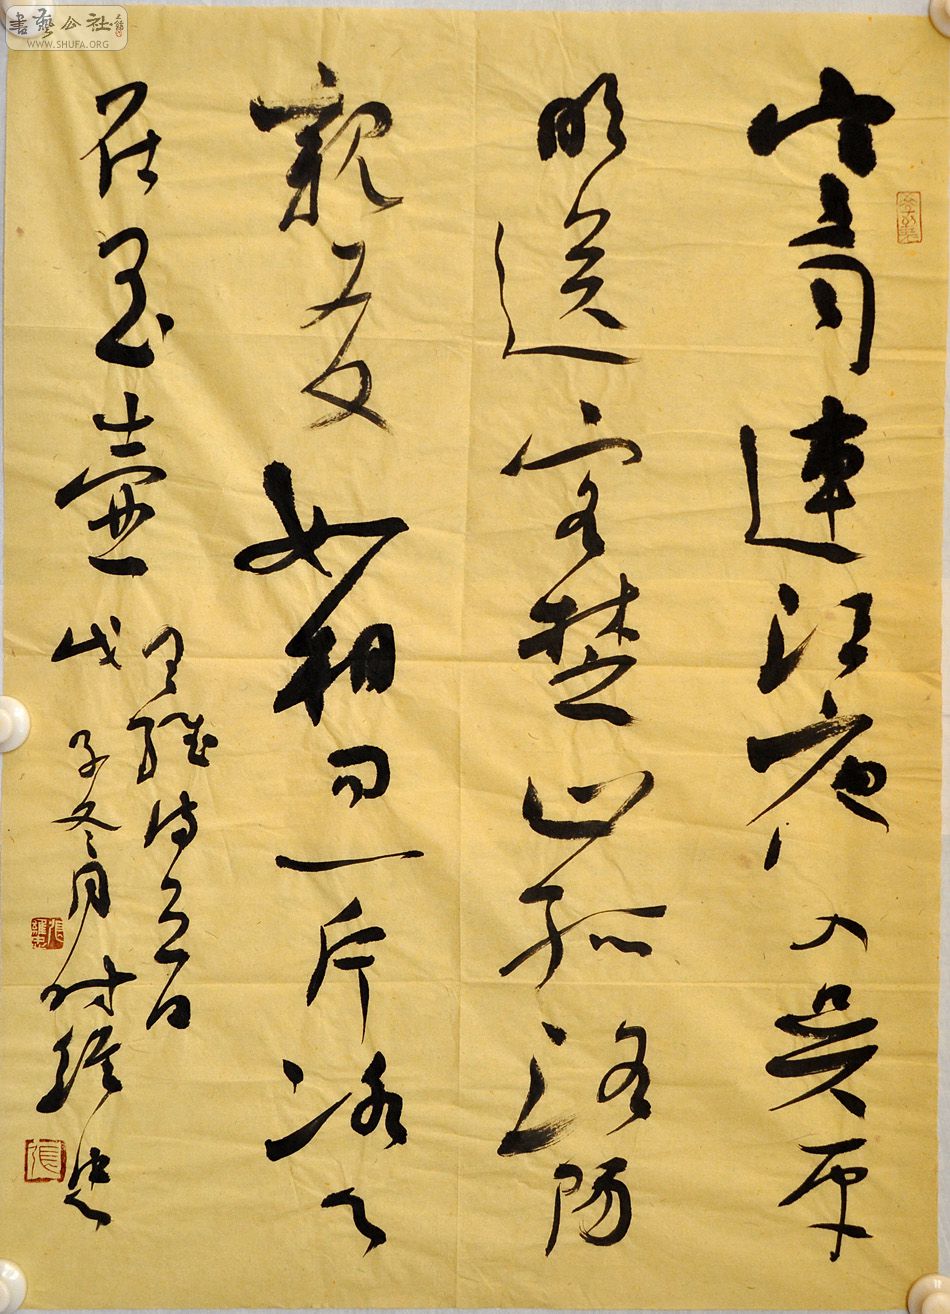 書藝公社
WWW.SHUFA.ORG
寒雨連江夜入吳平
明送客楚山孤洛陽
親友如相問一片冰心
在玉壺
戊子冬月維忠